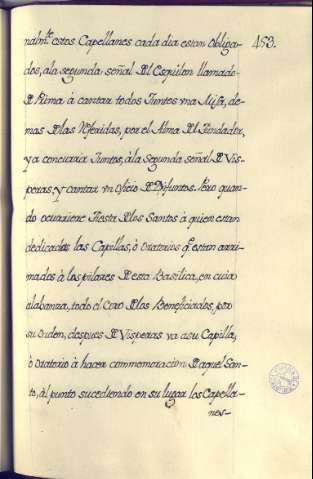 453.
nalmte. estos Capellanes cada dia estan obliga-
dos, a la segunda señal Del Esquilon llamado
De Prima à cantar todos Juntos vna Missa, de-
mas De las Referidas, por el Alma Del Fundador,
y a concurrir Juntos, à la segunda señal De Vis-
peras, y cantar vn Oficio De Difuntos. Pero quan-
do ocurriere fiesta De los Santos à quien estan
dedicadas las Capillas, ò Oratorios qe. estàn arri-
mados à los pilares De esta Basilica, en cuia
alabanza, todo el Coro De los Beneficiados, por
su Orden, despues De Visperas va a su Capilla,
ò Oratorio à hacer commemoracion De aquel San-
to, àl punto sucediendo en su lugar los Capella-
nes-